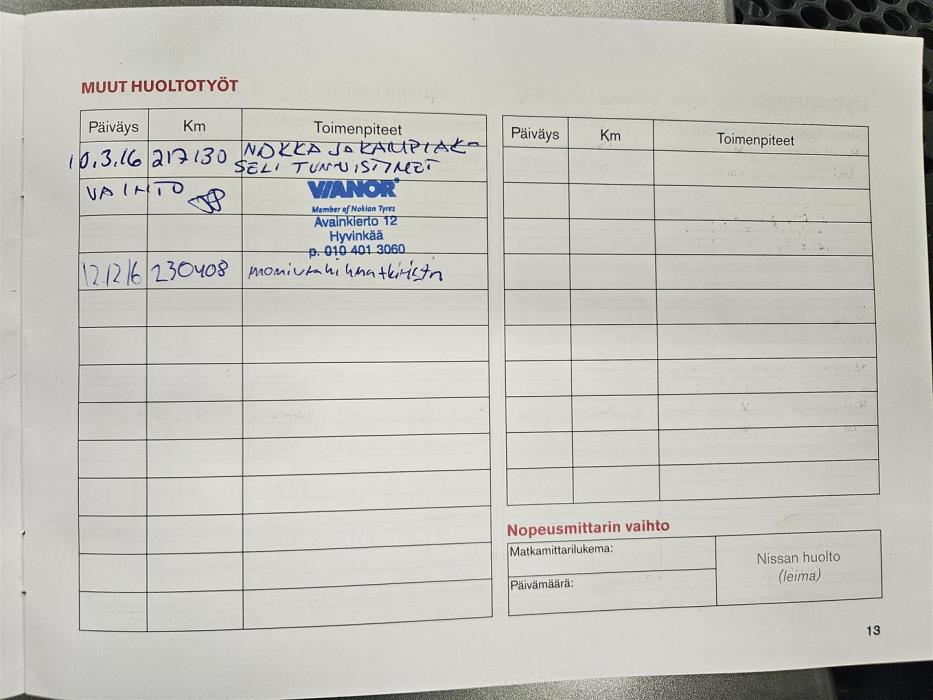 MUUT HUOLTOTYÖT
Päiväys Km Toimenpiteet
10.3.16 217130 NOKKA JA KAMPIAK-
SELI TUNNISTIMET
VAIHTO
VIANOR
Member of Nokian Tyres
Avainkierto 12
Hyvinkää
p. 010 401 3060
12.12.16 230408
Päiväys Km Toimenpiteet
Nopeusmittarin vaihto
Matkamittarilukema:
Päivämäärä:
Nissan huolto
(leima)
13